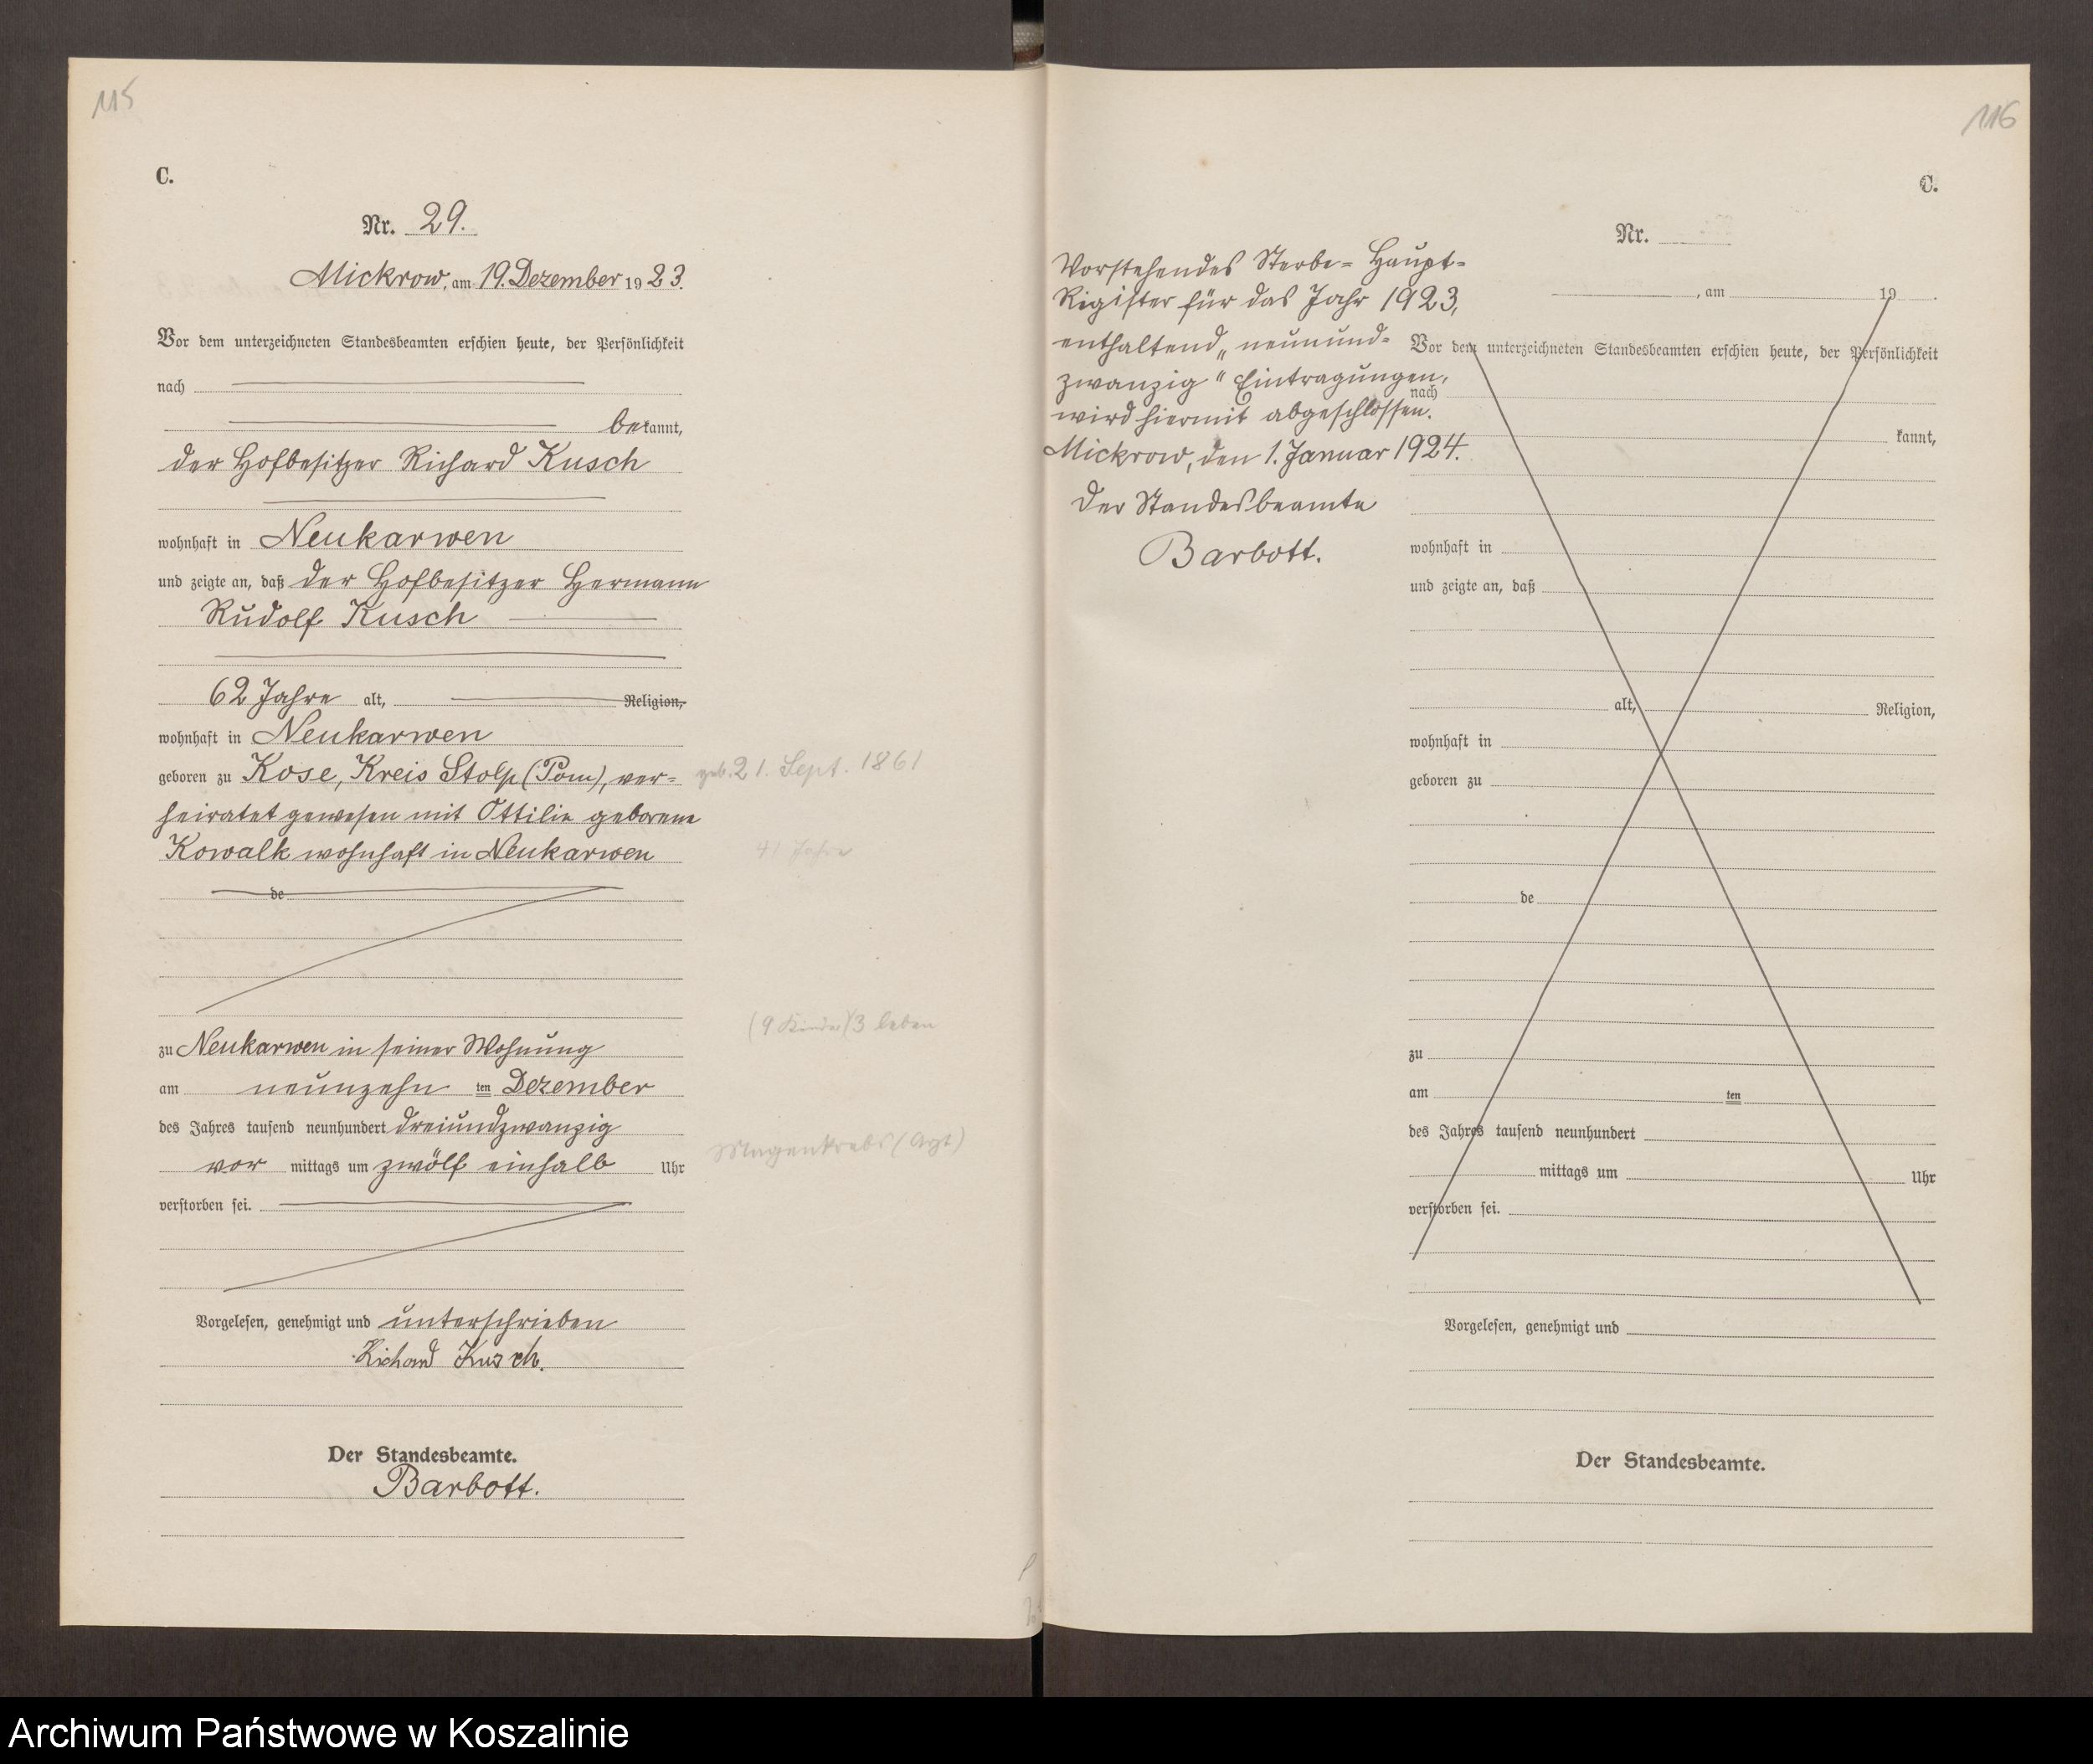 115
C.
Nr. 29.
Mickrow, am 19. Dezember 1923.
Vor dem unterzeichneten Standesbeamten erschien heute, der Persönlichkeit
nach
bekannt,
der Hofbesitzer Richard Kusch
wohnhaft in Neukarwen
und zeigte an, daß der Hofbesitzer Hermann
Rudolf Kusch
62 Jahre alt, Religion,
wohnhaft in Neukarwen
geboren zu Kose, Kreis Stolp (Pom), ver-
geb. 21. Sept. 1861
heiratet gewesen mit Ottilie geborene
Kowalk wohnhaft in Neukarwen
41 Jahre
de
(9 Kinder) 3 leben
zu Neukarwen in seiner Wohnung
am neunzehn ten Dezember
des Jahres tausend neunhundert dreiundzwanzig
Magenkrebs (Arzt)
vor mittags um zwölf einhalb Uhr
verstorben sei.
Vorgelesen, genehmigt und unterschrieben
Richard Kusch.
Der Standesbeamte.
Barbott.
116
C.
Nr.
Vorstehendes Sterbe-Haupt-
Rigister für das Jahr 1923,
enthaltend „neunund-
zwanzig" Eintragungen,
wird hiermit abgeschlossen.
Mickrow, den 1. Januar 1924.
Der Standesbeamte
Barbott.
, am 19 .
Vor dem unterzeichneten Standesbeamten erschien heute, der Persönlichkeit
nach
kannt,
wohnhaft in
und zeigte an, daß
alt, Religion,
wohnhaft in
geboren zu
de
zu
am ten
des Jahres tausend neunhundert
mittags um Uhr
verstorben sei.
Vorgelesen, genehmigt und
Der Standesbeamte.
Archiwum Państwowe w Koszalinie